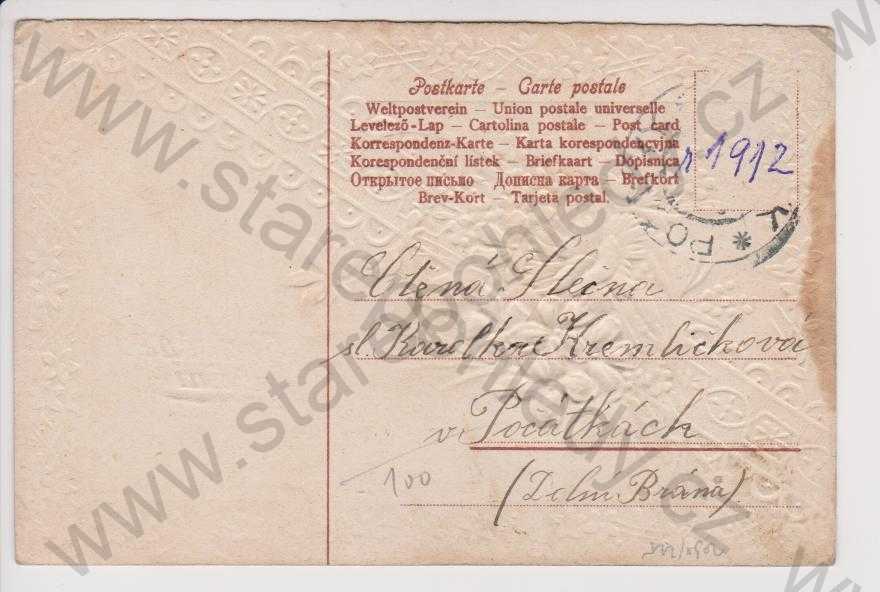 Postkarte – Carte postale
Weltpostverein – Union postale universelle
Levelező-Lap – Cartolina postale – Post card
Korrespondenz-Karte – Karta korespondencyjna
Korespondenční lístek – Briefkaart – Dopisnica
Открытое письмо – Дописна карта – Brefkort
Brev-Kort – Tarjeta postal.
r 1912
* POČ
Ctěná Slečna
sl. Karolka Kremličková
v Počátkách
(Dolní Brána)
100
www.starepohledy.cz